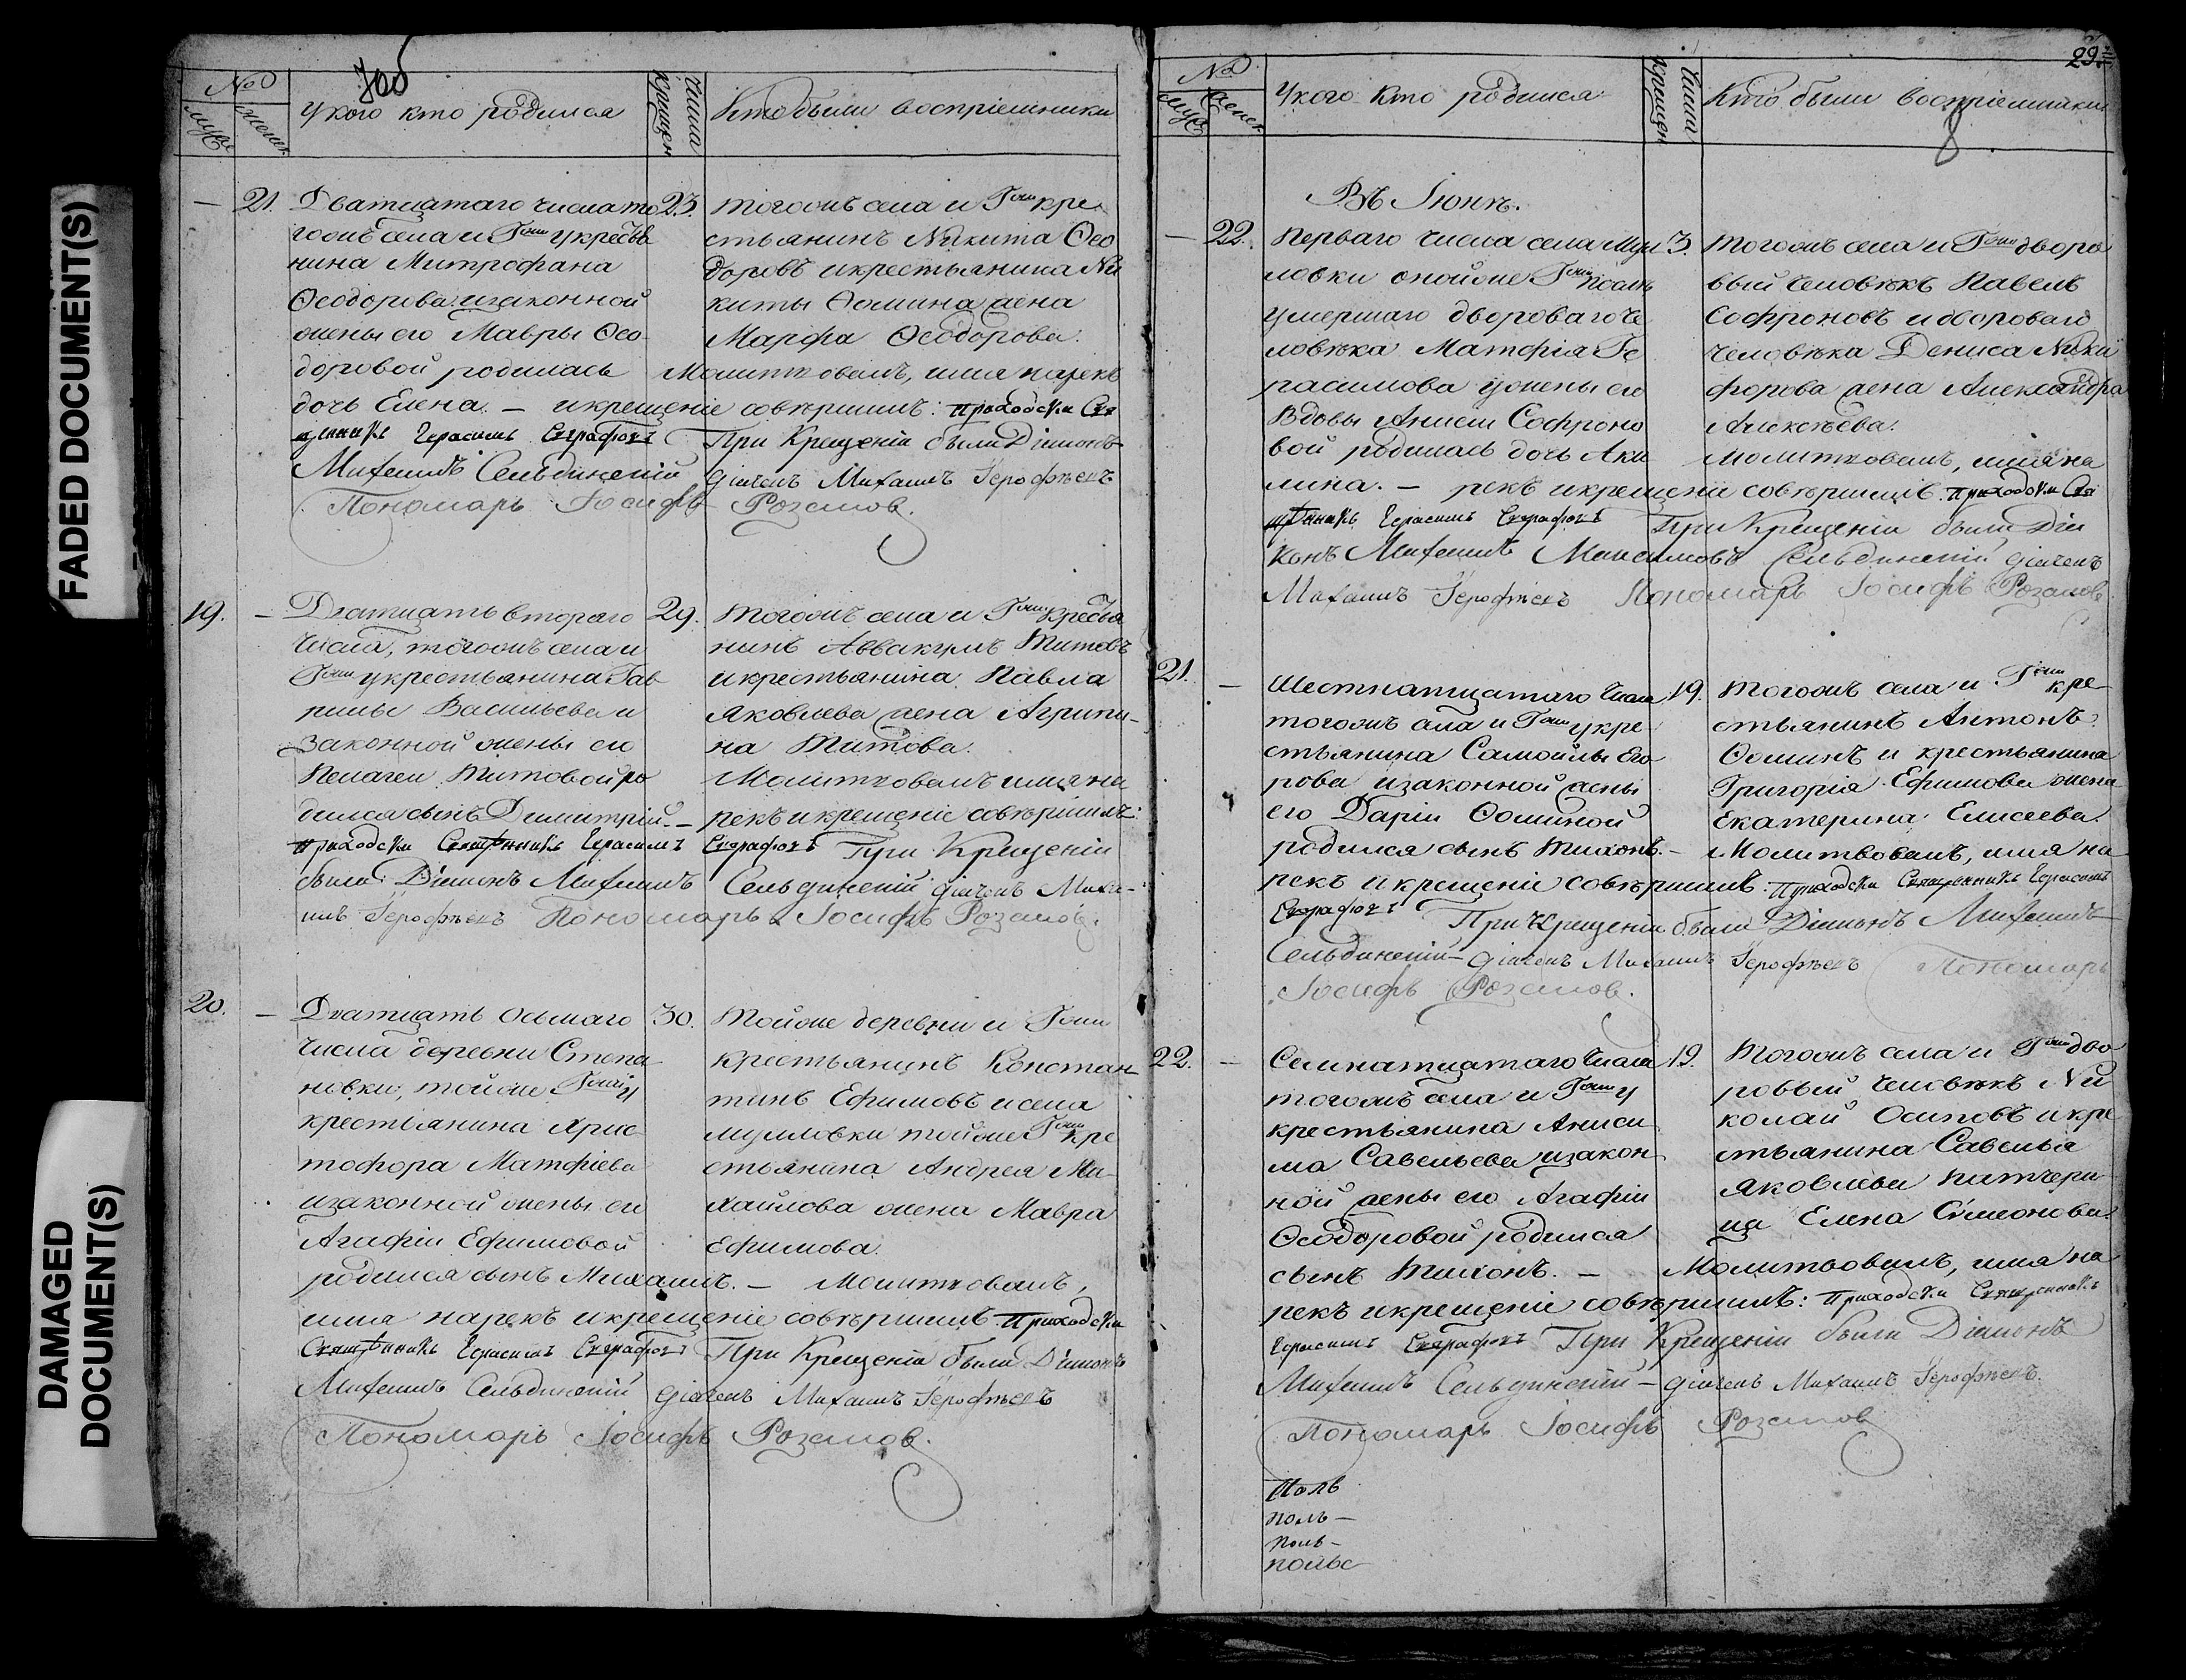 FADED DOCUMENT(S)
DAMAGED
DOCUMENT(S)
№
муж
женск
У кого кто родился
Числа
крещен
Кто были восприемники
21.
Дватцатаго числа то
гожъ села и Гжи у кресть
нина Митрофана
Ѳеодорова и законной
жены его Мавры Ѳео
доровой родилась
дочь Елена. —
23.
Тогожъ села и Гжи кре
стьянинъ Никита Ѳео
доровъ и крестьянина Ни
киты Ѳомина жена
Марфа Ѳеодорова.
Молитвовалъ, имя нарекъ
и крещеніе совершилъ: приходски Свя
щенникъ Герасимъ
При Крещеніи были Діяконъ
Михаилъ Сельдинскій дьячекъ Михаилъ Іерофеевъ
Пономарь Іосифъ Розановъ.
19.
Дватцать втораго
числа, тогожъ села и
Гжи у крестьянина Гав
рилы Васильева и
законной жены его
Пелагеи Титовой ро
дился сынъ Димитрій. —
29.
Тогожъ села и Гжи крестья
нинъ Аввакумъ Титовъ
и крестьянина Павла
Яковлева жена Агрипи-
на Титова.
Молитвовалъ имя на
рекъ и крещеніе совершилъ:
приходски Священникъ Герасимъ При Крещеніи
были Діяконъ Михаилъ Сельдинскій дьячекъ Миха-
илъ Іерофеевъ Пономарь Іосифъ Розановъ.
20.
Дватцать осьмаго
числа деревни Степа
новки, тойже Гжи у
крестьянина Хрис
тофора Матфіева
и законной жены его
Агафіи Ефимовой
родился сынъ Михаилъ. —
30.
Тойже деревни и Гжи
крестьянинъ Констан
тинъ Ефимовъ и села
тойже Гжи кре
стьянина Андрея Ми-
хайлова жена Мавра
Ефимова.
Молитвовалъ,
имя нарекъ и крещеніе совершилъ. Приходски
Священникъ Герасимъ При Крещеніи были Діяконъ
Михаилъ Сельдинскій дьячекъ Михаилъ Іерофеевъ
Пономарь Іосифъ Розановъ.
29
№
муж
женск
У кого кто родился
Числа
крещен
Кто были восприемники
8
Въ Іюнѣ.
22.
Перваго числа села
ловки онойже Гжи послѣ
умершаго двороваго че
ловѣка Матфія Ге
расимова у жены его
вдовы Анисіи Софроно
вой родилась дочь Аки
лина. —
3.
Тогожъ села и Гжи дворо
вый человѣкъ Павелъ
Софроновъ и двороваго
человѣка Дениса Ники
форова жена Александра
Алексѣева.
Молитвовалъ, имя на
рекъ и крещеніе совершилъ. Приходски Свя
щенникъ Герасимъ При Крещеніи были Дія
конъ Михаилъ Максимовъ Сельдинскій дьячекъ
Михаилъ Іерофеевъ Пономарь Іосифъ Розановъ
21.
Шестнатцатаго числа
тогожъ села и Гжи у кре-
стьянина Самойлы Его
рова и законной жены
его Даріи Ѳоминой
родился сынъ Тихонъ. —
19.
Тогожъ села и Гжи кре-
стьянинъ Антонъ
Ѳоминъ и крестьянина
Григорія Ефимова жена
Екатерина Елисеева.
Молитвовалъ, имя на
рекъ и крещеніе совершилъ. Приходски Священникъ Герасимъ
При Крещеніи были Діяконъ Михаилъ
Сельдинскій — дьячекъ Михаилъ Іерофеевъ Пономарь
Іосифъ Розановъ.
22.
Семнатцатаго числа
тогожъ села и Гжи у
крестьянина Аниси
ма Савельева и закон
ной жены его Агафіи
Ѳеодоровой родился
сынъ Тихонъ. —
19.
Тогожъ села и Гжи дво
ровый человѣкъ Ни
колай Осиповъ и кре
стьянина Савелья
Яковлева патчери
ца Елена Симеонова.
Молитвовалъ, имя на
рекъ и крещеніе совершилъ: Приходски Священникъ
Герасимъ При Крещеніи были Діяконъ
Михаилъ Сельдинскій — дьячекъ Михаилъ Іерофеевъ.
Пономарь Іосифъ Розановъ